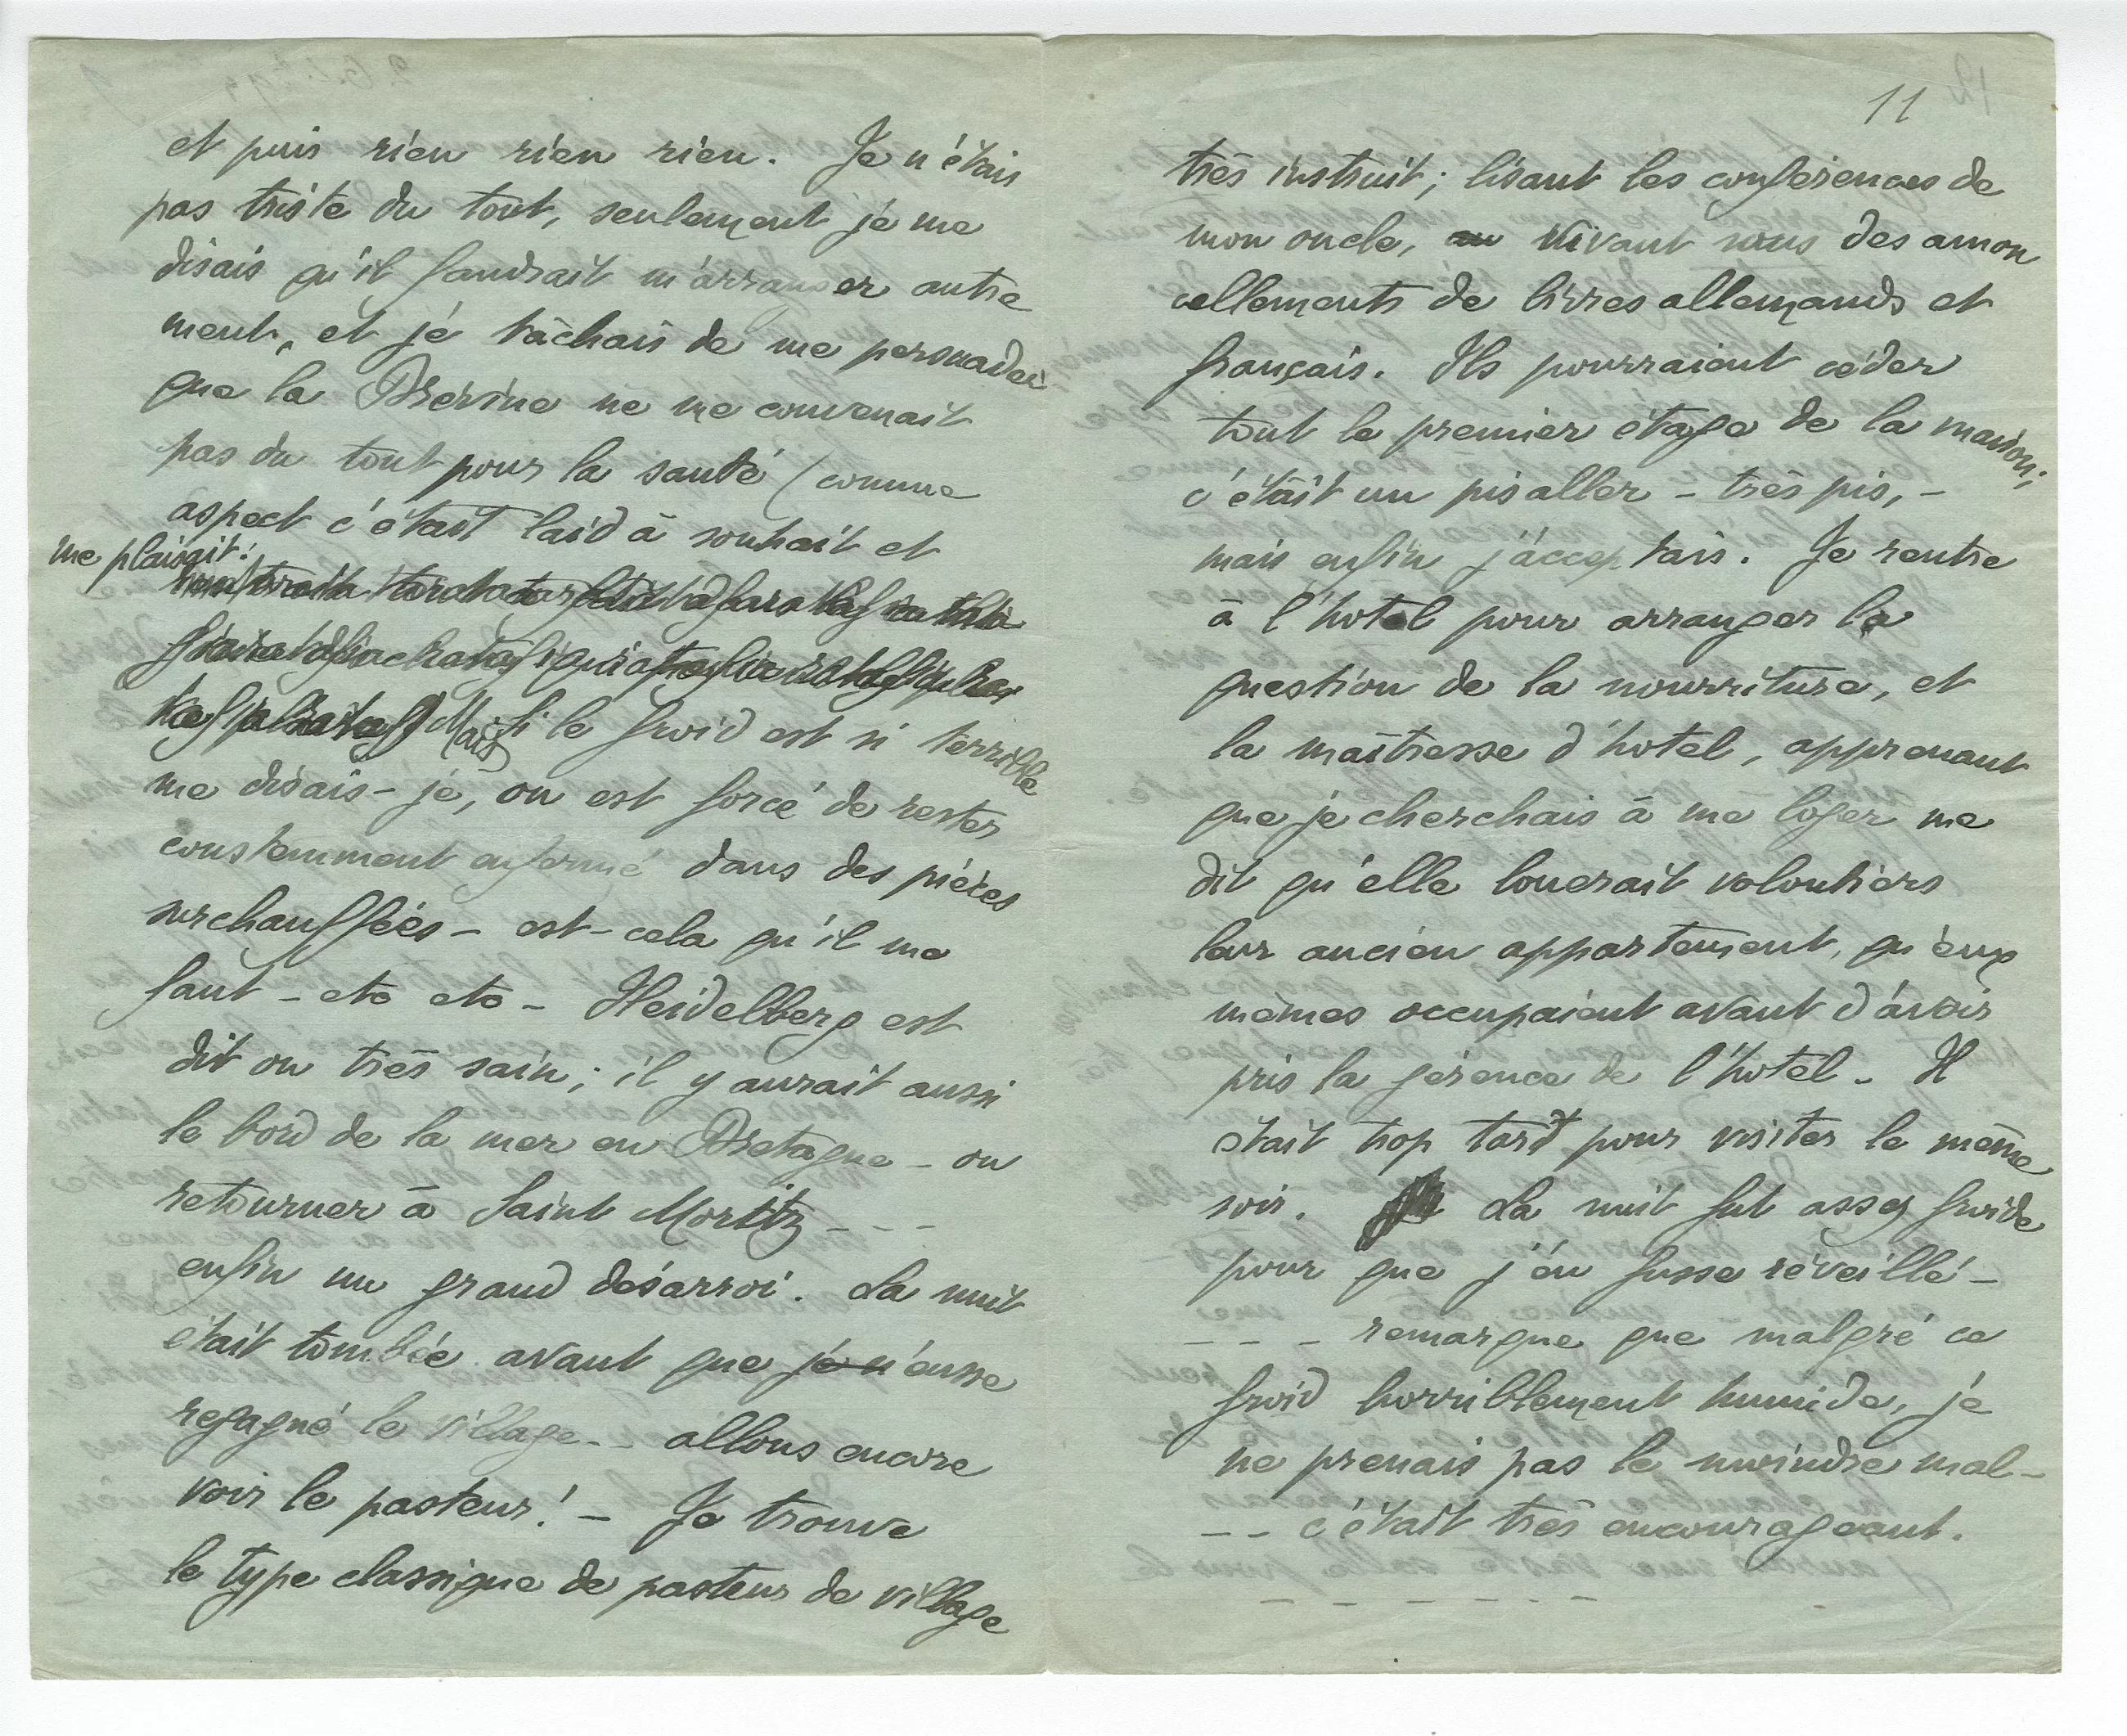 et puis rien rien rien. Je n'étais
pas triste du tout, seulement je me
disais qu'il faudrait m'arranger autre
ment, et je tâchais de me persuader
que la Brévine ne me convenait
pas du tout pour la santé (comme
aspect c'était laid à souhait et
me plaisait!
Mais si le froid est si terrible
me disais-je, on est forcé de rester
constamment enfermé dans des pièces
surchauffées - est-cela qu'il me
faut - etc etc - Heidelberg est
dit on très sain; il y aurait aussi
le bord de la mer en Bretagne - ou
retourner à Saint Moritz - - -
enfin un grand désarroi. La nuit
était tombée avant que je n'eusse
regagné le village -- allons encore
voir le pasteur! - Je trouve
le type classique de pasteur de village
11
très instruit; lisant les conférences de
mon oncle, au vivant sous des amon
cellements de livres allemands et
français. Ils pourraient céder
tout le premier étage de la maison;
c'était un pis aller - très pis, -
mais enfin j'acceptais. Je rentre
à l'hotel pour arranger la
question de la nourriture, et
la maîtresse d'hotel, apprenant
que je cherchais à me loger me
dit qu'elle louerait volontiers
leur ancien appartement, qu'eux
mêmes occupaient avant d'avoir
pris la gérence de l'hotel - Il
était trop tard pour visiter le même
soir. La nuit fut assez froide
pour que j'en fusse réveillé -
- - - remarque que malgré ce
froid horriblement humide, je
ne prenais pas le moindre mal -
- - c'était très encourageant.
- - - - - - -